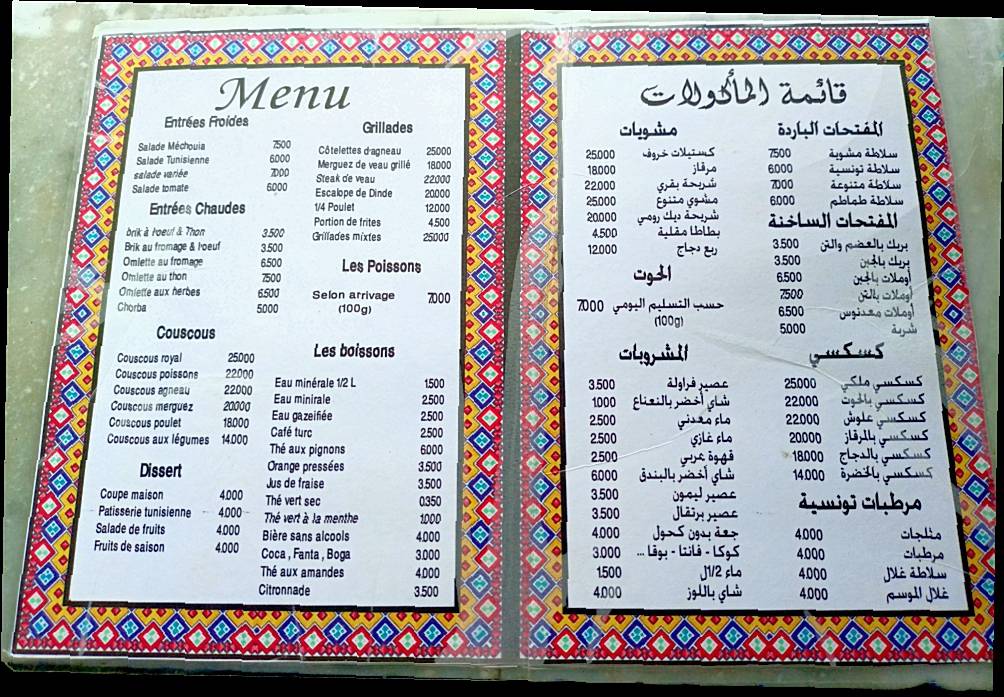 Menu
Entrées Froides
Salade Méchouia 7500
Salade Tunisienne 6.000
salade variée 7000
Salade tomate 6.000
Entrées Chaudes
brik à l'oeuf & Thon 3.500
Brik au fromage & l'oeuf 3.500
Omlette au fromage 6.500
Omlette au thon 7500
Omlette aux herbes 6.500
Chorba 5.000
Couscous
Couscous royal 25.000
Couscous poissons 22.000
Couscous agneau 22.000
Couscous merguez 20.000
Couscous poulet 18.000
Couscous aux légumes 14.000
Dissert
Coupe maison 4.000
Patisserie tunisienne 4.000
Salade de fruits 4.000
Fruits de saison 4.000
Grillades
Côtelettes d'agneau 25.000
Merguez de veau grillé 18.000
Steak de veau 22.000
Escalope de Dinde 20.000
1/4 Poulet 12.000
Portion de frites 4.500
Grillades mixtes 25.000
Les Poissons
Selon arrivage 7.000
(100g)
Les boissons
Eau minérale 1/2 L 1.500
Eau minirale 2.500
Eau gazeifiée 2.500
Café turc 2.500
Thé aux pignons 6.000
Orange pressées 3.500
Jus de fraise 3.500
Thé vert sec 0.350
Thé vert à la menthe 1.000
Bière sans alcools 4.000
Coca , Fanta , Boga 3.000
Thé aux amandes 4.000
Citronnade 3.500
قائمة المأكولات
المفتحات الباردة
سلاطة مشوية 7500
سلاطة تونسية 6.000
سلاطة متنوعة 7.000
سلاطة طماطم 6.000
المفتحات الساخنة
بريك بالعضم والتن 3.500
بريك بالجبن 3.500
أوملات بالجبن 6.500
أوملات بالتن 7500
أوملات معدنوس 6.500
شربة 5.000
كسكسي
كسكسي ملكي 25.000
كسكسي بالحوت 22.000
كسكسي علوش 22.000
كسكسي بالمرقاز 20.000
كسكسي بالدجاج 18.000
كسكسي بالخضرة 14.000
مرطبات تونسية
مثلجات 4.000
مرطبات 4.000
سلاطة غلال 4.000
غلال الموسم 4.000
مشويات
كستيلات خروف 25.000
مرقاز 18.000
شريحة بقري 22.000
مشوي متنوع 25.000
شريحة ديك رومي 20.000
بطاطا مقلية 4.500
ربع دجاج 12.000
الحوت
حسب التسليم اليومي 7.000
(100g)
المشروبات
عصير فراولة 3.500
شاي أخضر بالنعناع 1.000
ماء معدني 2.500
ماء غازي 2.500
قهوة عربي 2.500
شاي أخضر بالبندق 6.000
عصير ليمون 3.500
عصير برتقال 3.500
جعة بدون كحول 4.000
كوكا - فانتا - بوقا ... 3.000
ماء 1/2ل 1.500
شاي باللوز 4.000